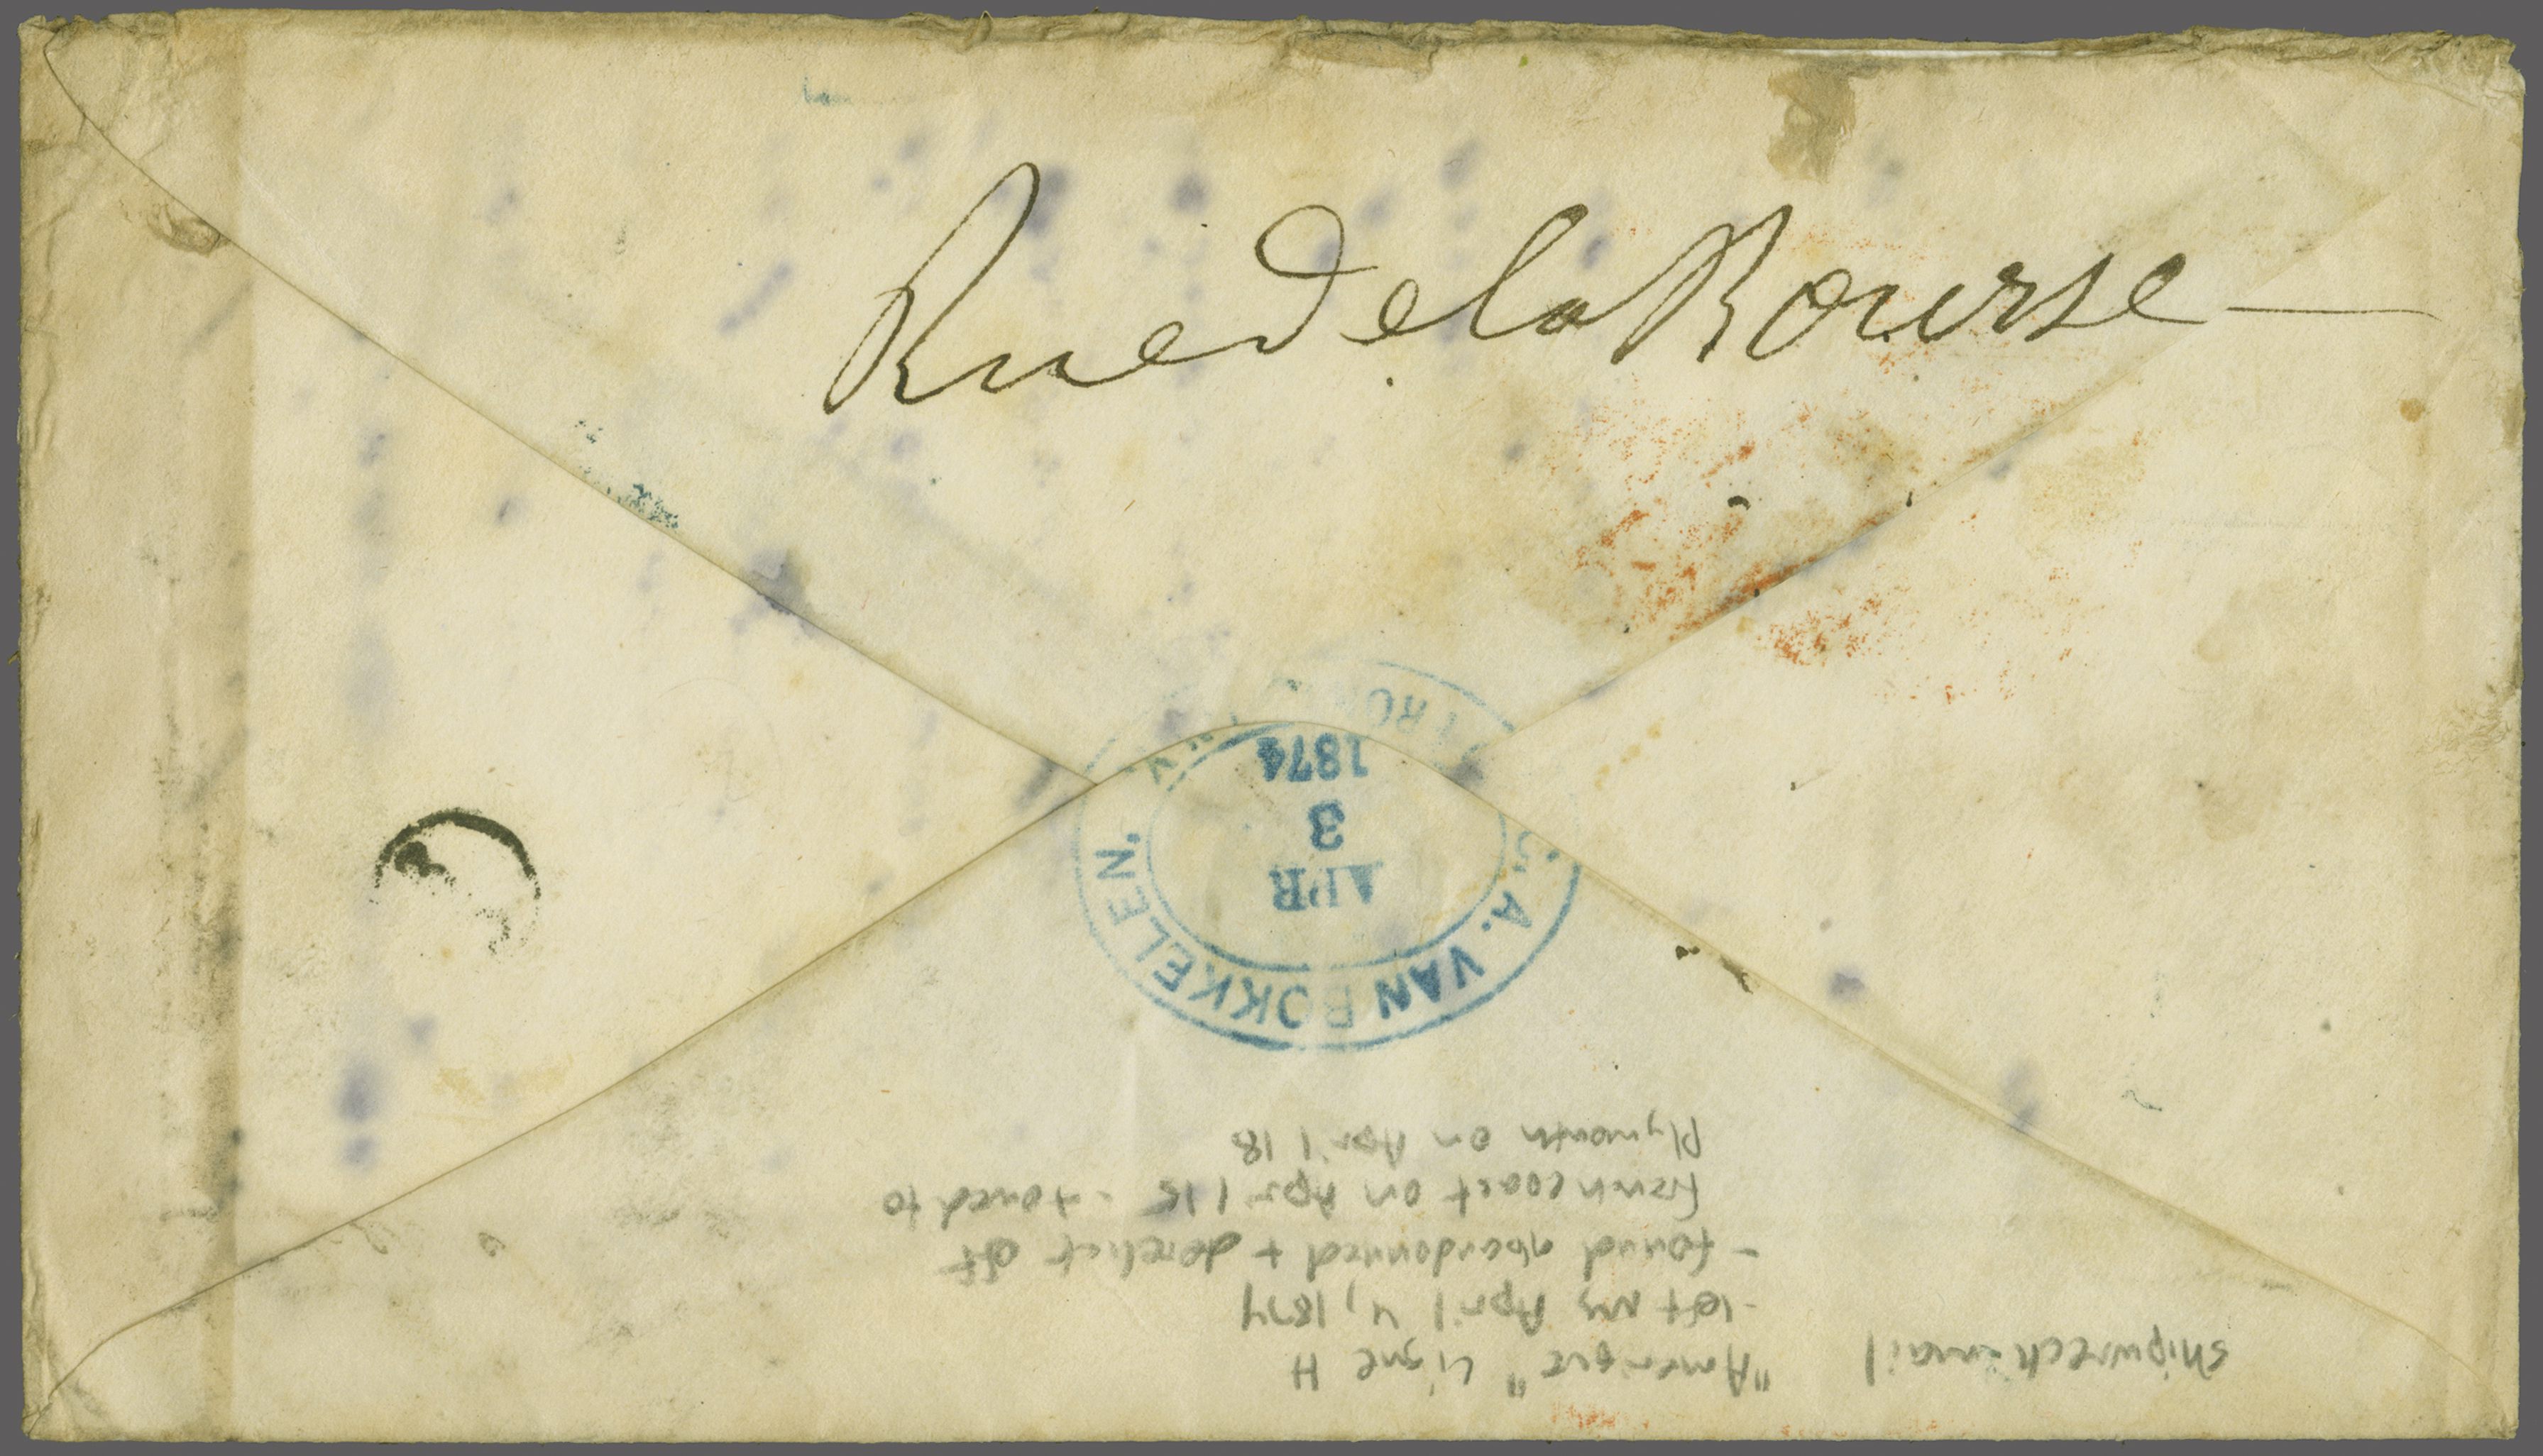 Rue de la Bourse
S. A. VAN BOKKELEN.
APR
3
1874
shipwreck mail
"Amerique" Ligne H
- left NY April 4, 1874
- found abandonned + derelict off
french coast on April 15 - towed to
Plymouth on April 18